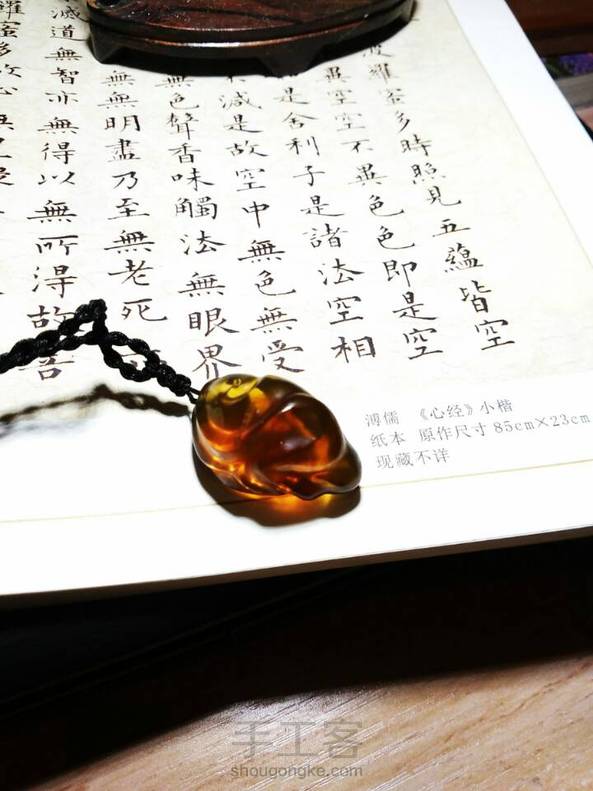 波羅蜜多時照見五蘊皆空
異空空不異色色即是空
是舍利子是諸法空相
不減是故空中無色無受
無色聲香味觸法無眼界
無無明盡乃至無老死
滅道無智亦無得以無所得故菩
羅蜜多故心無
溥儒 《心经》小楷
纸本 原作尺寸85cm×23cm
现藏不详
手工客
shougongke.com